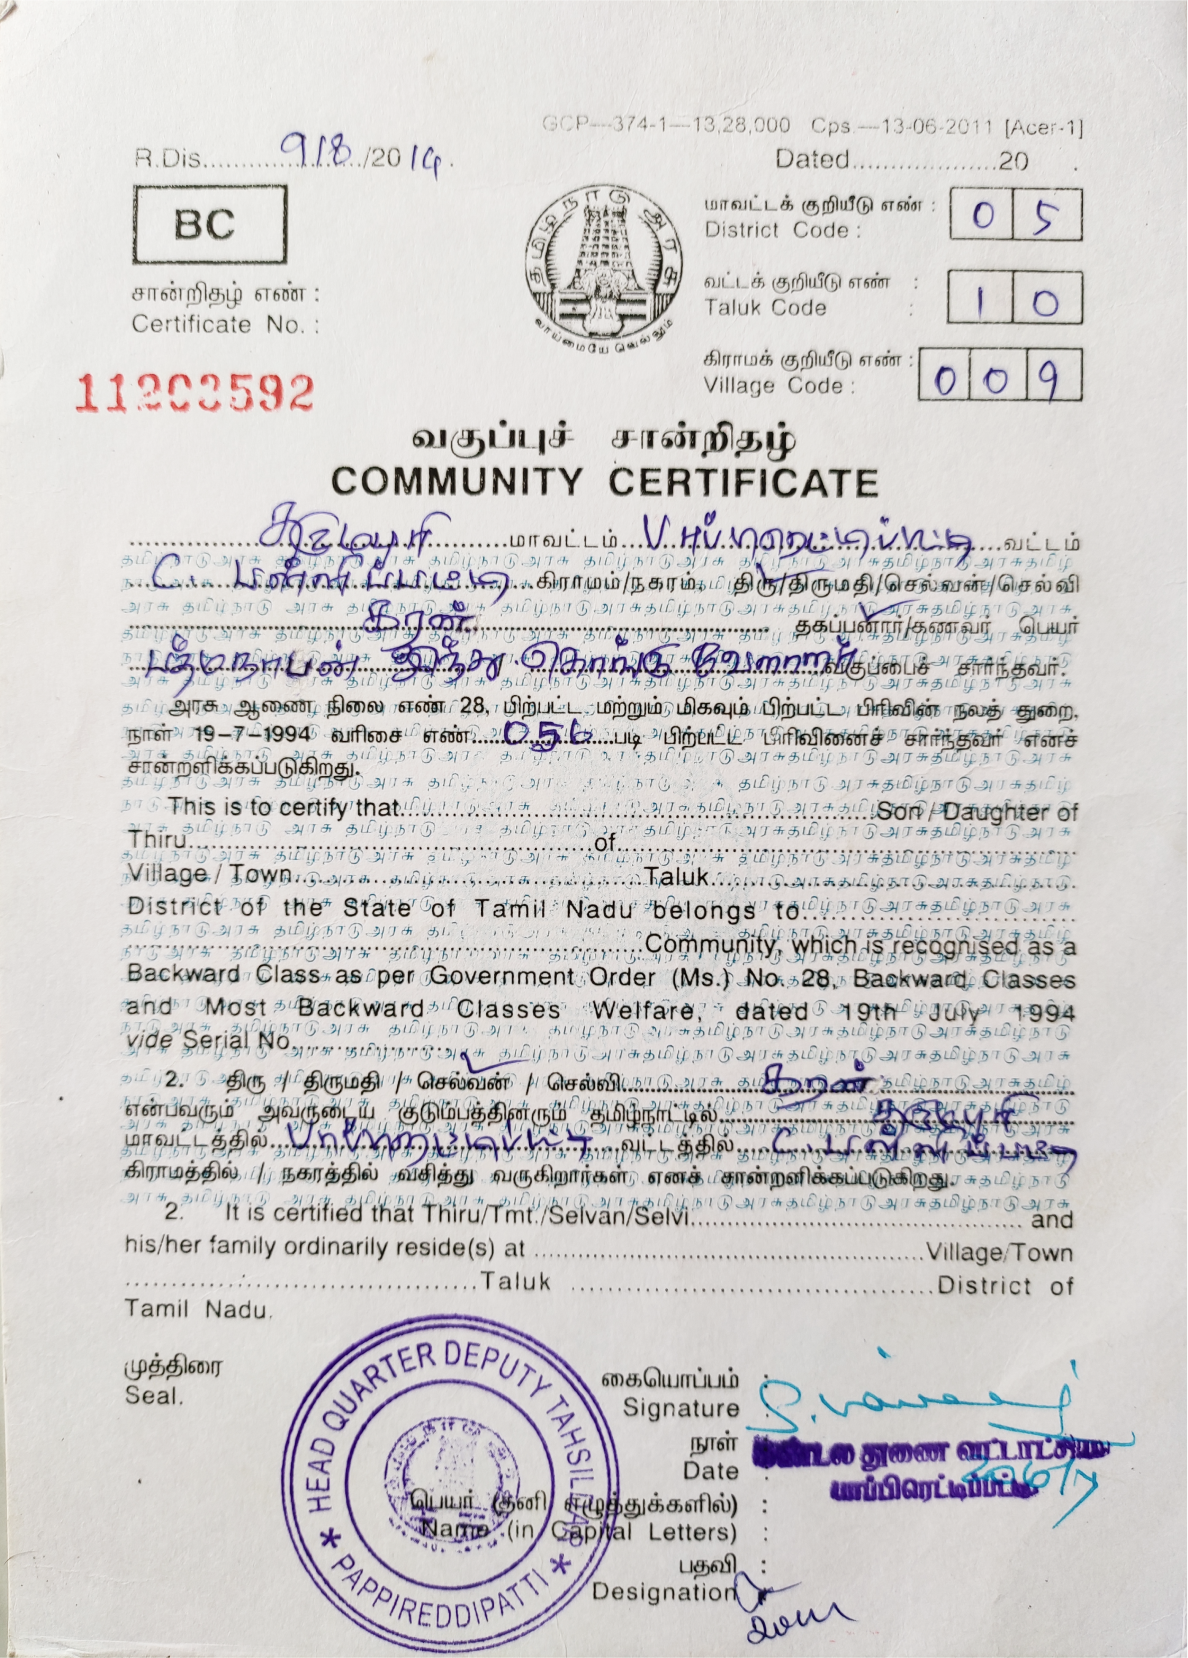 GCP—374-1—13,28,000 Cps.—13-06-2011 [Acer-1]
R.Dis..............918../2014.
Dated...................20 .
BC
தமிழ்நாடு அரசு
வாய்மையே வெல்லும்
மாவட்டக் குறியீடு எண் : 0 5
District Code :
சான்றிதழ் எண் :
Certificate No. :
வட்டக் குறியீடு எண் : 1 0
Taluk Code :
கிராமக் குறியீடு எண் : 0 0 9
Village Code :
11203592
வகுப்புச் சான்றிதழ்
COMMUNITY CERTIFICATE
தருமபுரி மாவட்டம் பாப்பிரெட்டிப்பட்டி வட்டம்
C. பள்ளிப்பட்டி கிராமம்/நகரம், திரு/திருமதி/செல்வன்/செல்வி
தரண் தகப்பனார்/கணவர் பெயர்
பத்மநாபன் இந்து கொங்கு வேளாளர் வகுப்பைச் சார்ந்தவர்.
அரசு ஆணை நிலை எண் 28, பிற்பட்ட மற்றும் மிகவும் பிற்பட்ட பிரிவின் நலத் துறை,
நாள் 19-7-1994 வரிசை எண் 056 படி பிற்பட்ட பிரிவினைச் சார்ந்தவர் எனச்
சான்றளிக்கப்படுகிறது.
This is to certify that..........Son / Daughter of
Thiru..........of..........
Village / Town..........Taluk..........
District of the State of Tamil Nadu belongs to..........
..........Community, which is recognised as a
Backward Class as per Government Order (Ms.) No. 28, Backward Classes
and Most Backward Classes Welfare, dated 19th July 1994
vide Serial No..........
2. திரு / திருமதி / செல்வன் / செல்வி தரண்
என்பவரும் அவருடைய குடும்பத்தினரும் தமிழ்நாட்டில் தருமபுரி
மாவட்டத்தில் பாப்பிரெட்டிப்பட்டி வட்டத்தில் C. பள்ளிப்பட்டி
கிராமத்தில் / நகரத்தில் வசித்து வருகிறார்கள் எனச் சான்றளிக்கப்படுகிறது.
2. It is certified that Thiru/Tmt./Selvan/Selvi.......... and
his/her family ordinarily reside(s) at ..........Village/Town
..........Taluk ..........District of
Tamil Nadu.
முத்திரை
Seal.
HEAD QUARTER DEPUTY TAHSILDAR
* PAPPIREDDIPATTI *
கையொப்பம் :
Signature :
நாள்
Date :
மண்டல துணை வட்டாட்சியர்
பாப்பிரெட்டிப்பட்டி
பெயர் (தனி எழுத்துக்களில்) :
Name (in Capital Letters) :
பதவி :
Designation